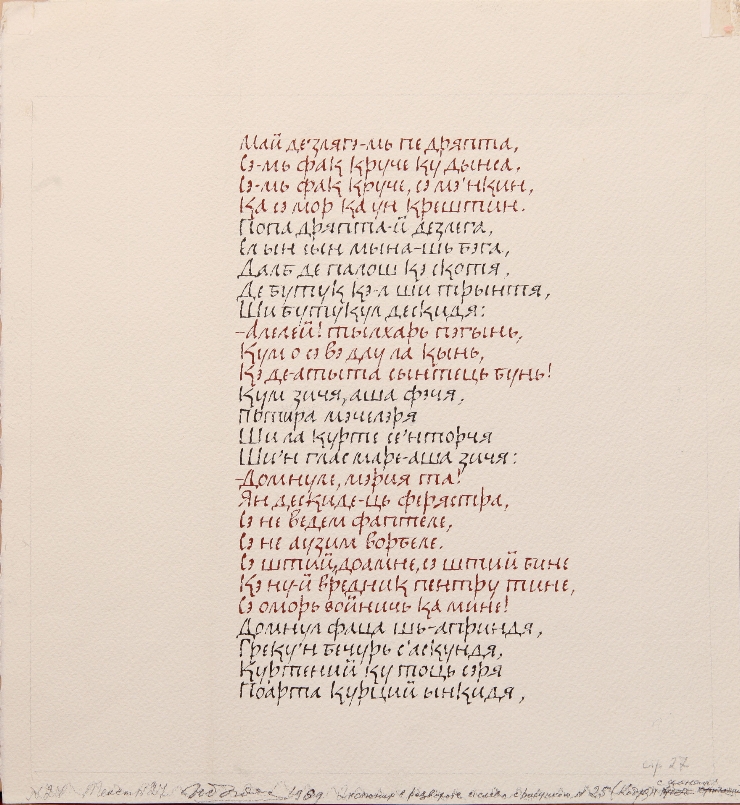 Май дезлягэ-мь пе дряпта,
Сэ-мь фак круче ку дынса.
Сэ-мь фак круче, сэ мэ'нкин,
Ка сэ мор ка ун крештин.
Попа дряпта-й дезлега,
Ел ын сын мына-шь бэга,
Далб де палош кэ скотя,
Де бутук кэ-л ши трынтя,
Ши бутукул дескидя:
-Алелей! тылхарь пэгынь,
Кум о сэ вэ дау ла кынь,
Кэ де-атыта сынтець бунь!
Кум зичя, аша фэчя,
Пытира мэчелэря
Ши ла курте се'нторчя
Ши'н глас маре-аша зичя:
-Домнуле, мэрия та!
Ян дескиде-ць ферястра,
Сэ не ведем фаптеле,
Сэ не аузим ворбеле.
Сэ штий, доамне, сэ штий бине
Кэ ну-й вредник пентру тине,
Сэ оморь войничь ка мине!
Домнул фаца шь-априндя,
Греку'н бечурь с'аскундя,
Куртений ку тоць сэря
Поарта курций ынкидя,
стр 27
Текст 1969 с разворота слева с рисунком № 25